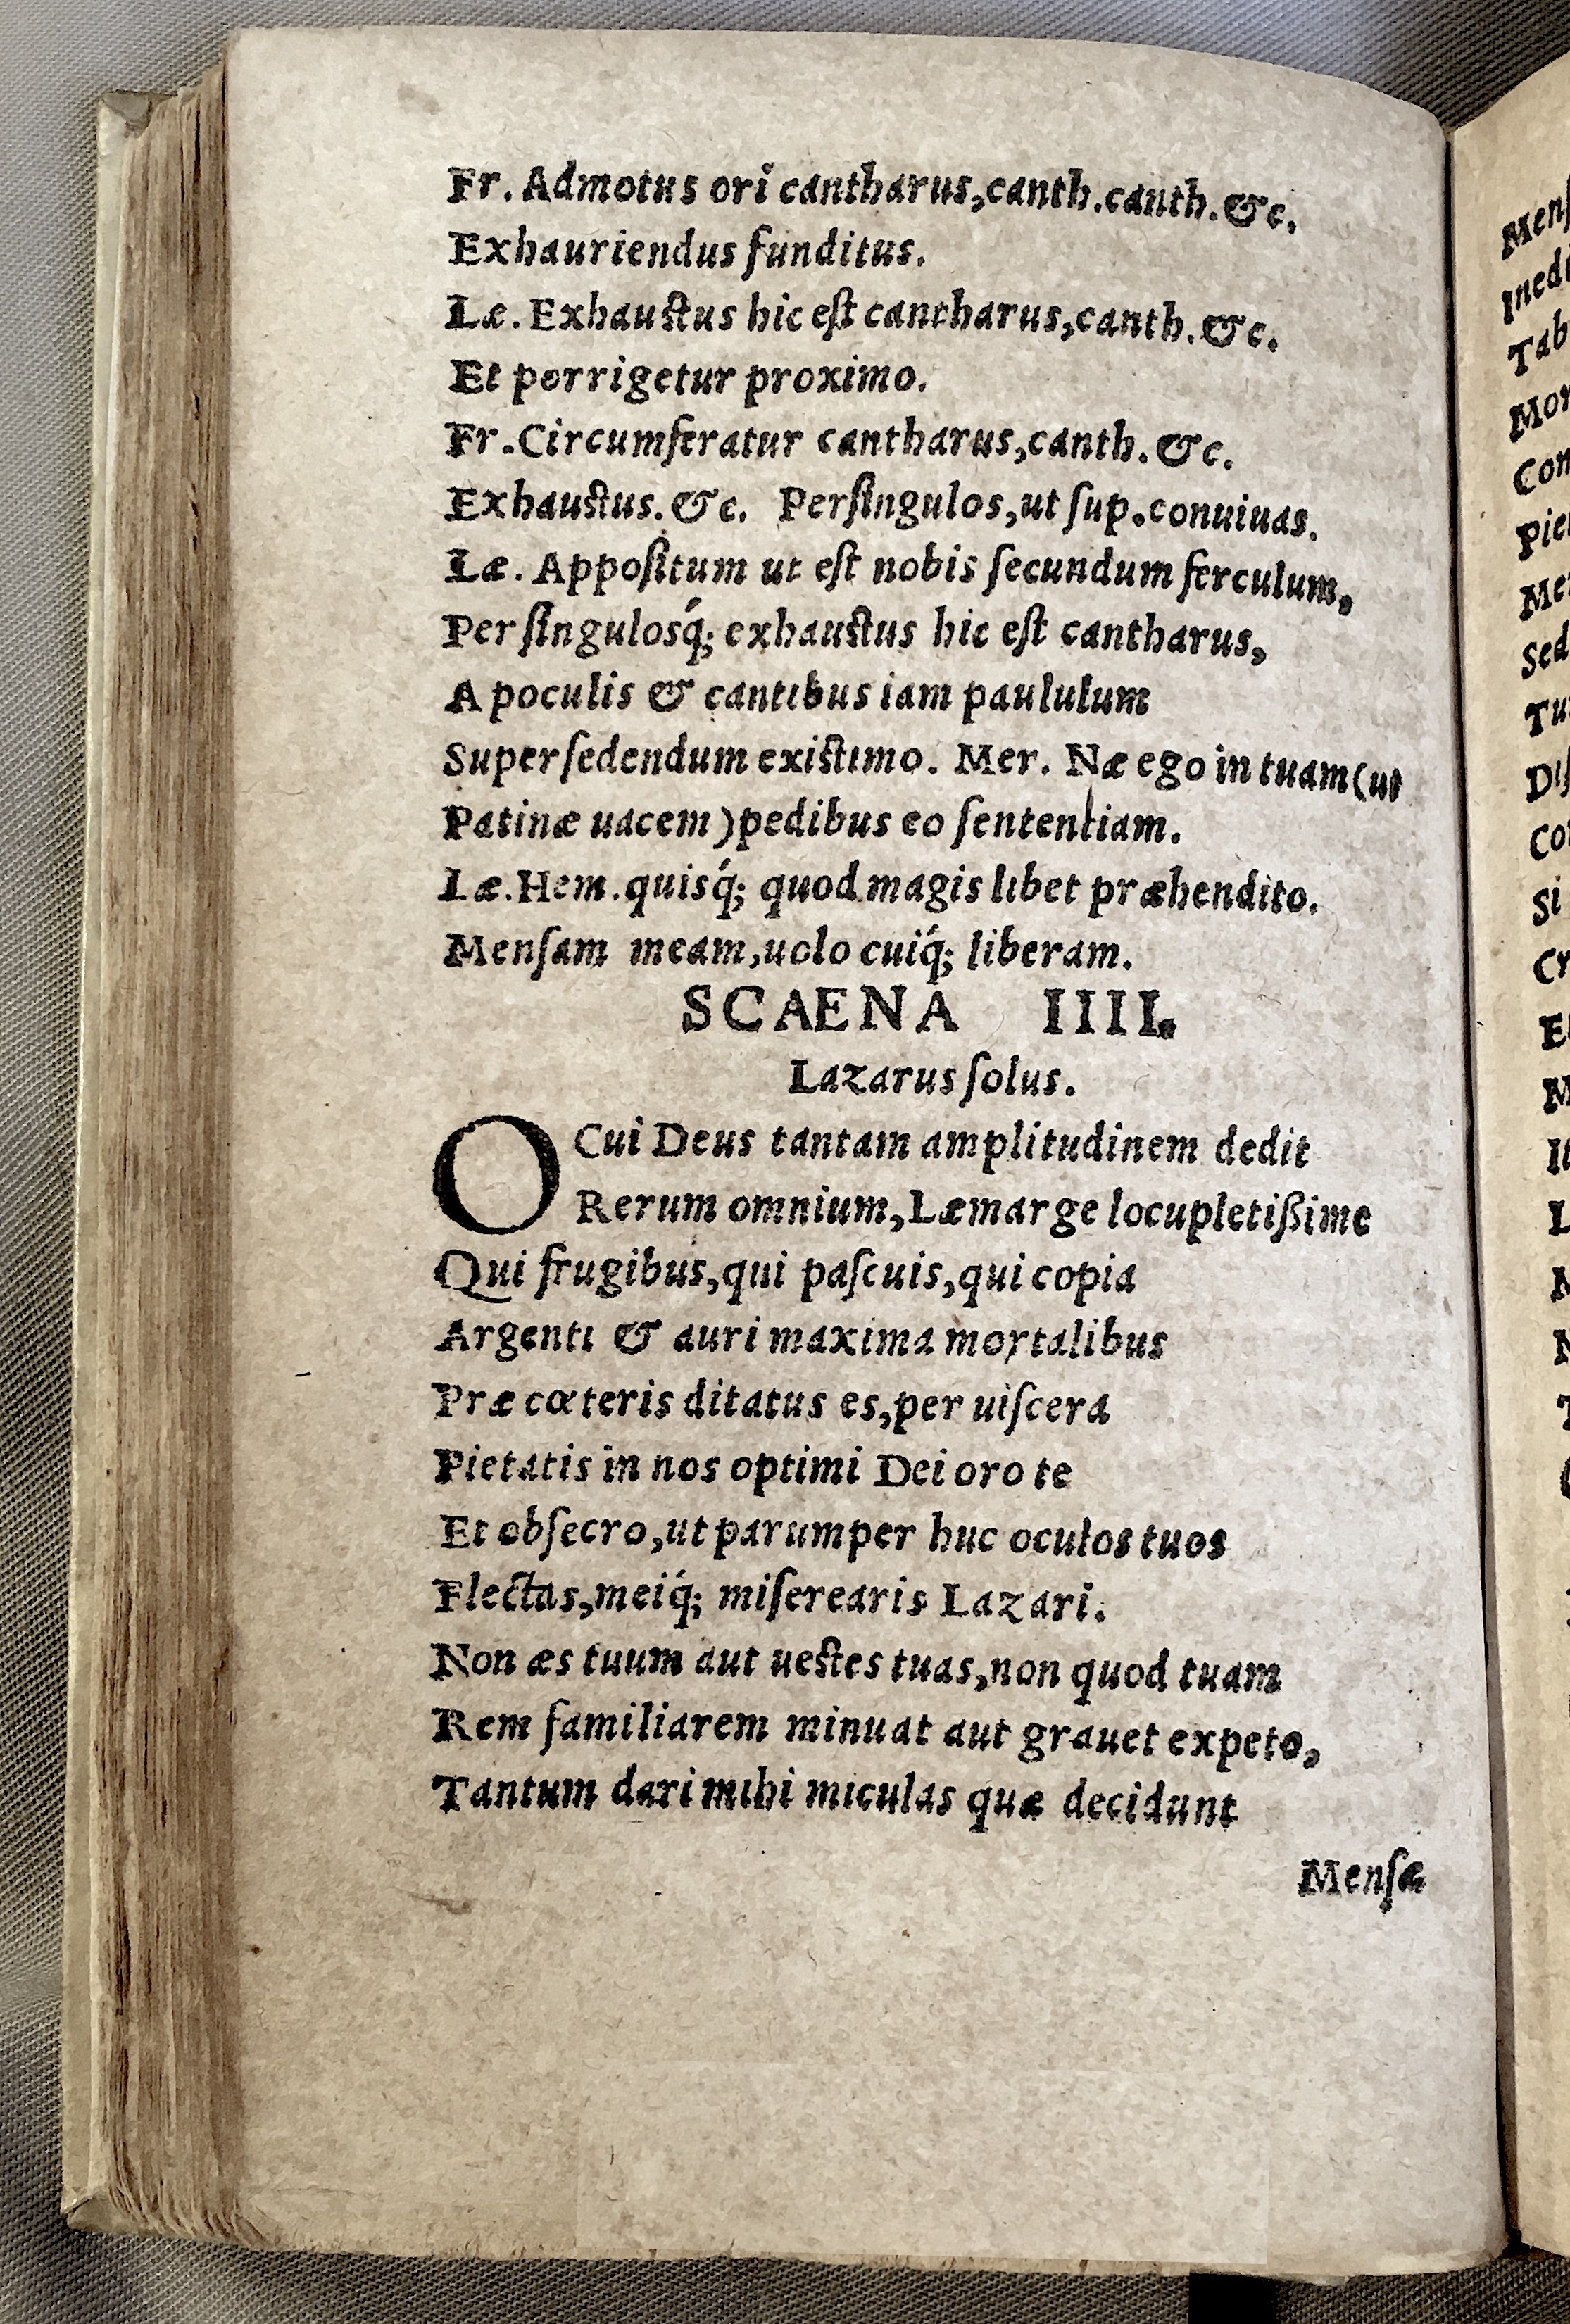 Fr. Admotus ori cantharus,canth.canth.&c.
Exhauriendus funditus.
Læ. Exhaustus hic eſt cantharus,canth.&c.
Et porrigetur proximo.
Fr.Circumferatur cantharus,canth.&c.
Exhaustus.&c. Perſingulos,ut ſup.conuiuas.
Læ. Appoſitum ut eſt nobis ſecundum ferculum,
Per ſingulosq́; exhaustus hic eſt cantharus,
A poculis & cantibus iam paululum
Superſedendum existimo. Mer. Næ ego in tuam(ut
Patinæ uacem)pedibus eo ſententiam.
Læ.Hem.quisq́; quod magis libet præhendito.
Menſam meam,uolo cuiq́; liberam.
SCAENA IIII.
Lazarus ſolus.
O Cui Deus tantam amplitudinem dedit
Rerum omnium,Læmarge locupletißime
Qui frugibus,qui paſcuis,qui copia
Argenti & auri maxima mortalibus
Præ cœteris ditatus es,per uiſcera
Pietatis in nos optimi Dei oro te
Et obſecro,ut parumper huc oculos tuos
Flectas,meiq́; miſerearis Lazari.
Non æs tuum aut uestes tuas,non quod tuam
Rem familiarem minuat aut grauet expeto,
Tantum dari mihi miculas quæ decidunt
Menſæ
Tab